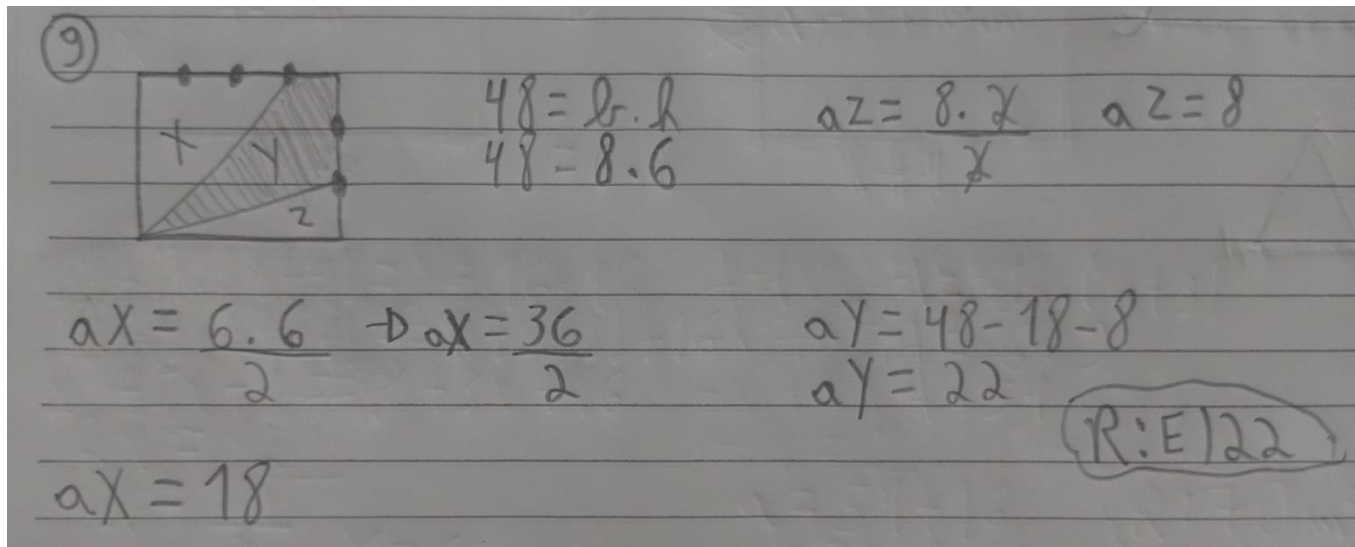 9
X
Y
z
48 = b.h
48 = 8.6
az = 8.2/2
az = 8
aX = 6.6/2 → aX = 36/2
aX = 18
aY = 48-18-8
aY = 22
R:E)22